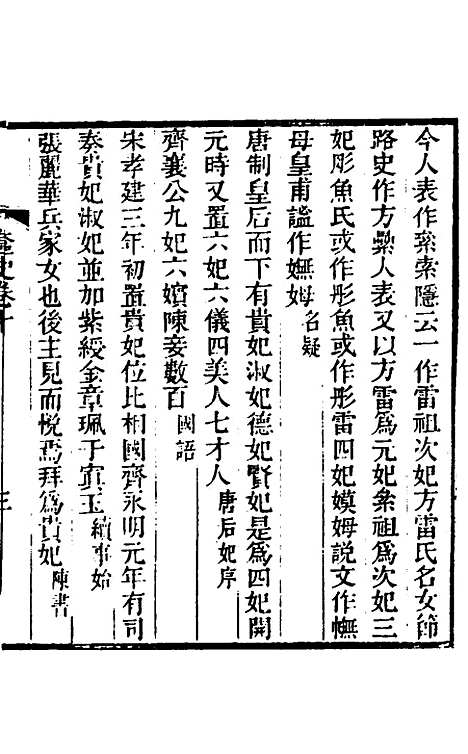 今人表作絫索隱云一作雷祖次妃方雷氏名女節
路史作方纍人表又以方雷爲元妃絫祖爲次妃三
妃彤魚氏或作彤魚或作彤雷四妃嫫姆說文作㒇
母皇甫謐作嫫姆名疑
唐制皇后而下有貴妃淑妃德妃賢妃是爲四妃開
元時又置六妃六儀四美人七才人唐后妃序
齊襄公九妃六嬪陳妾數百國語
宋孝建三年初置貴妃位比相國齊永明元年有司
奏貴妃淑妃並加紫綬金章珮于窴玉續事始
張麗華兵家女也後主見而悅焉拜爲貴妃陳書
史卷十
三